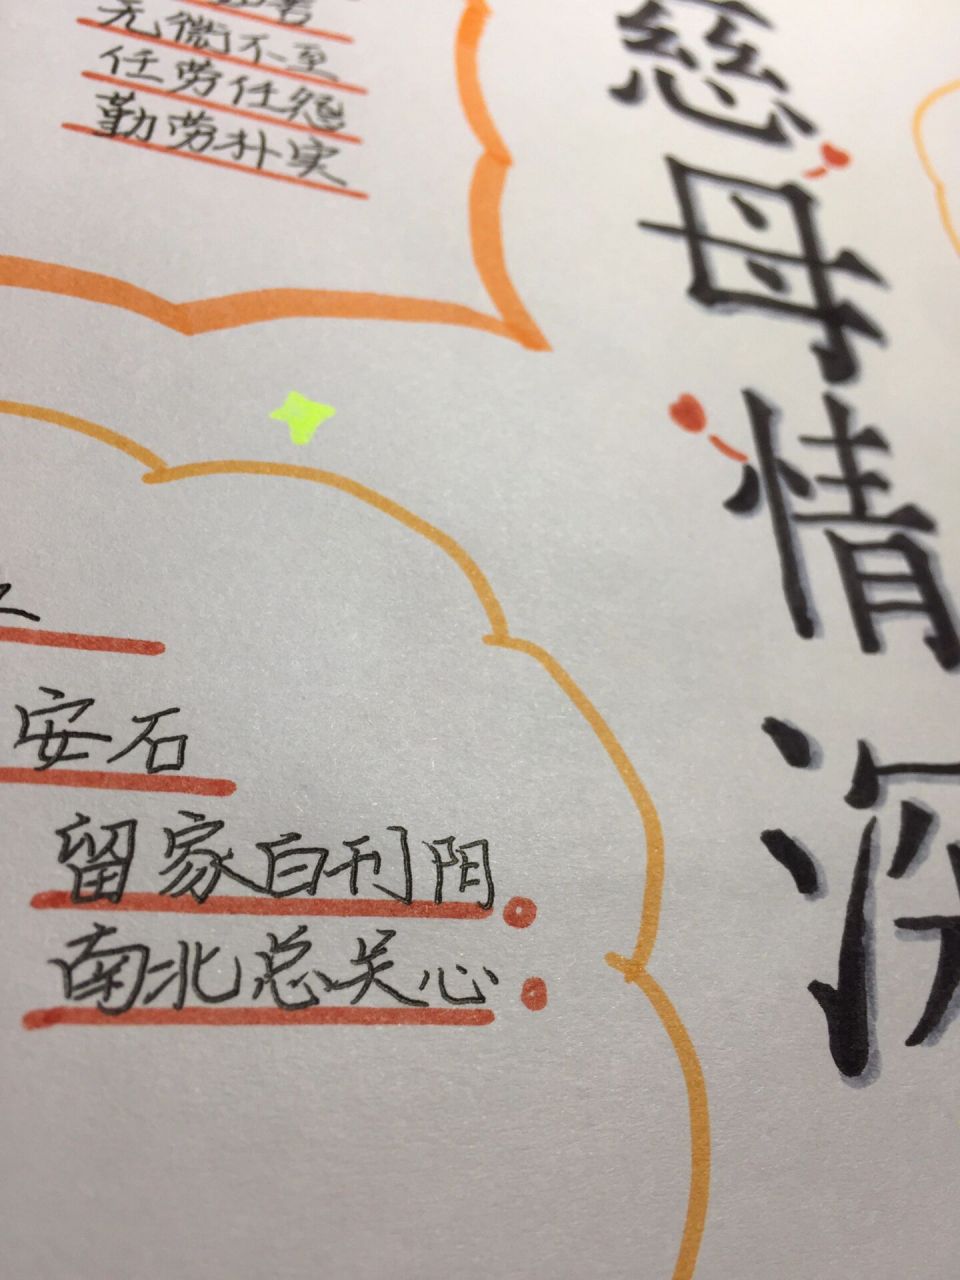 无微不至
任劳任怨
勤劳朴实
慈母情深
安石
留家白刊阳
南北总关心